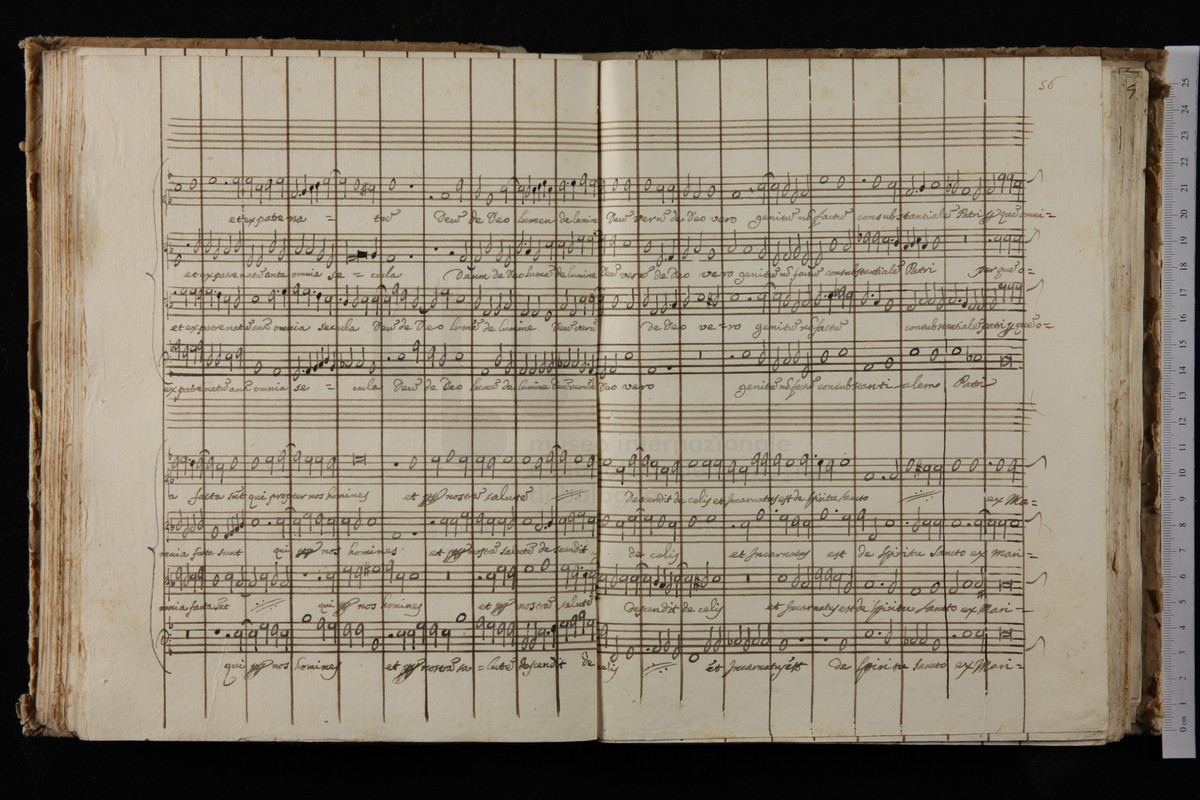 56
et ex patre na = tū Deū de Deo lumen de lumine Deū verū de Deo vero genitū nō factū consubstantialē Patri p quē omni =
et ex patre natū ante omnia se = cula Deum de Deo lumē de lumine Deū verū de Deo vero genitū nō factū consubstantialē Patri per quē o =
et ex patre natū ante omnia secula Deū de Deo lumē de lumine Deū verū de Deo ve = ro genitū nō factū consubstantialē patri p quē o =
ex patre natū ante omnia se = cula Deū de Deo lumē de lumine Deū verū de Deo vero genitū nō factū consubstanti alem Patri
a facta sūt qui propter nos homines et pp nostrā salutē Descendit de celis et Incarnatus est de Spiritu Sancto ex Ma =
mnia facta sunt qui pp nos homines et pp nostrā salutē descendit de celis et Incarnatus est de Spiritu Sancto ex Mari =
mnia facta sūt qui pp nos homines et pp nostrā salutē descendit de celis et Incarnatus est de Spiritu Sancto ex Mari =
qui pp nos homines et pp nostrā sa = lutē descendit de celis et Incarnatus est de Spiritu Sancto ex Mari =
museo internazionale